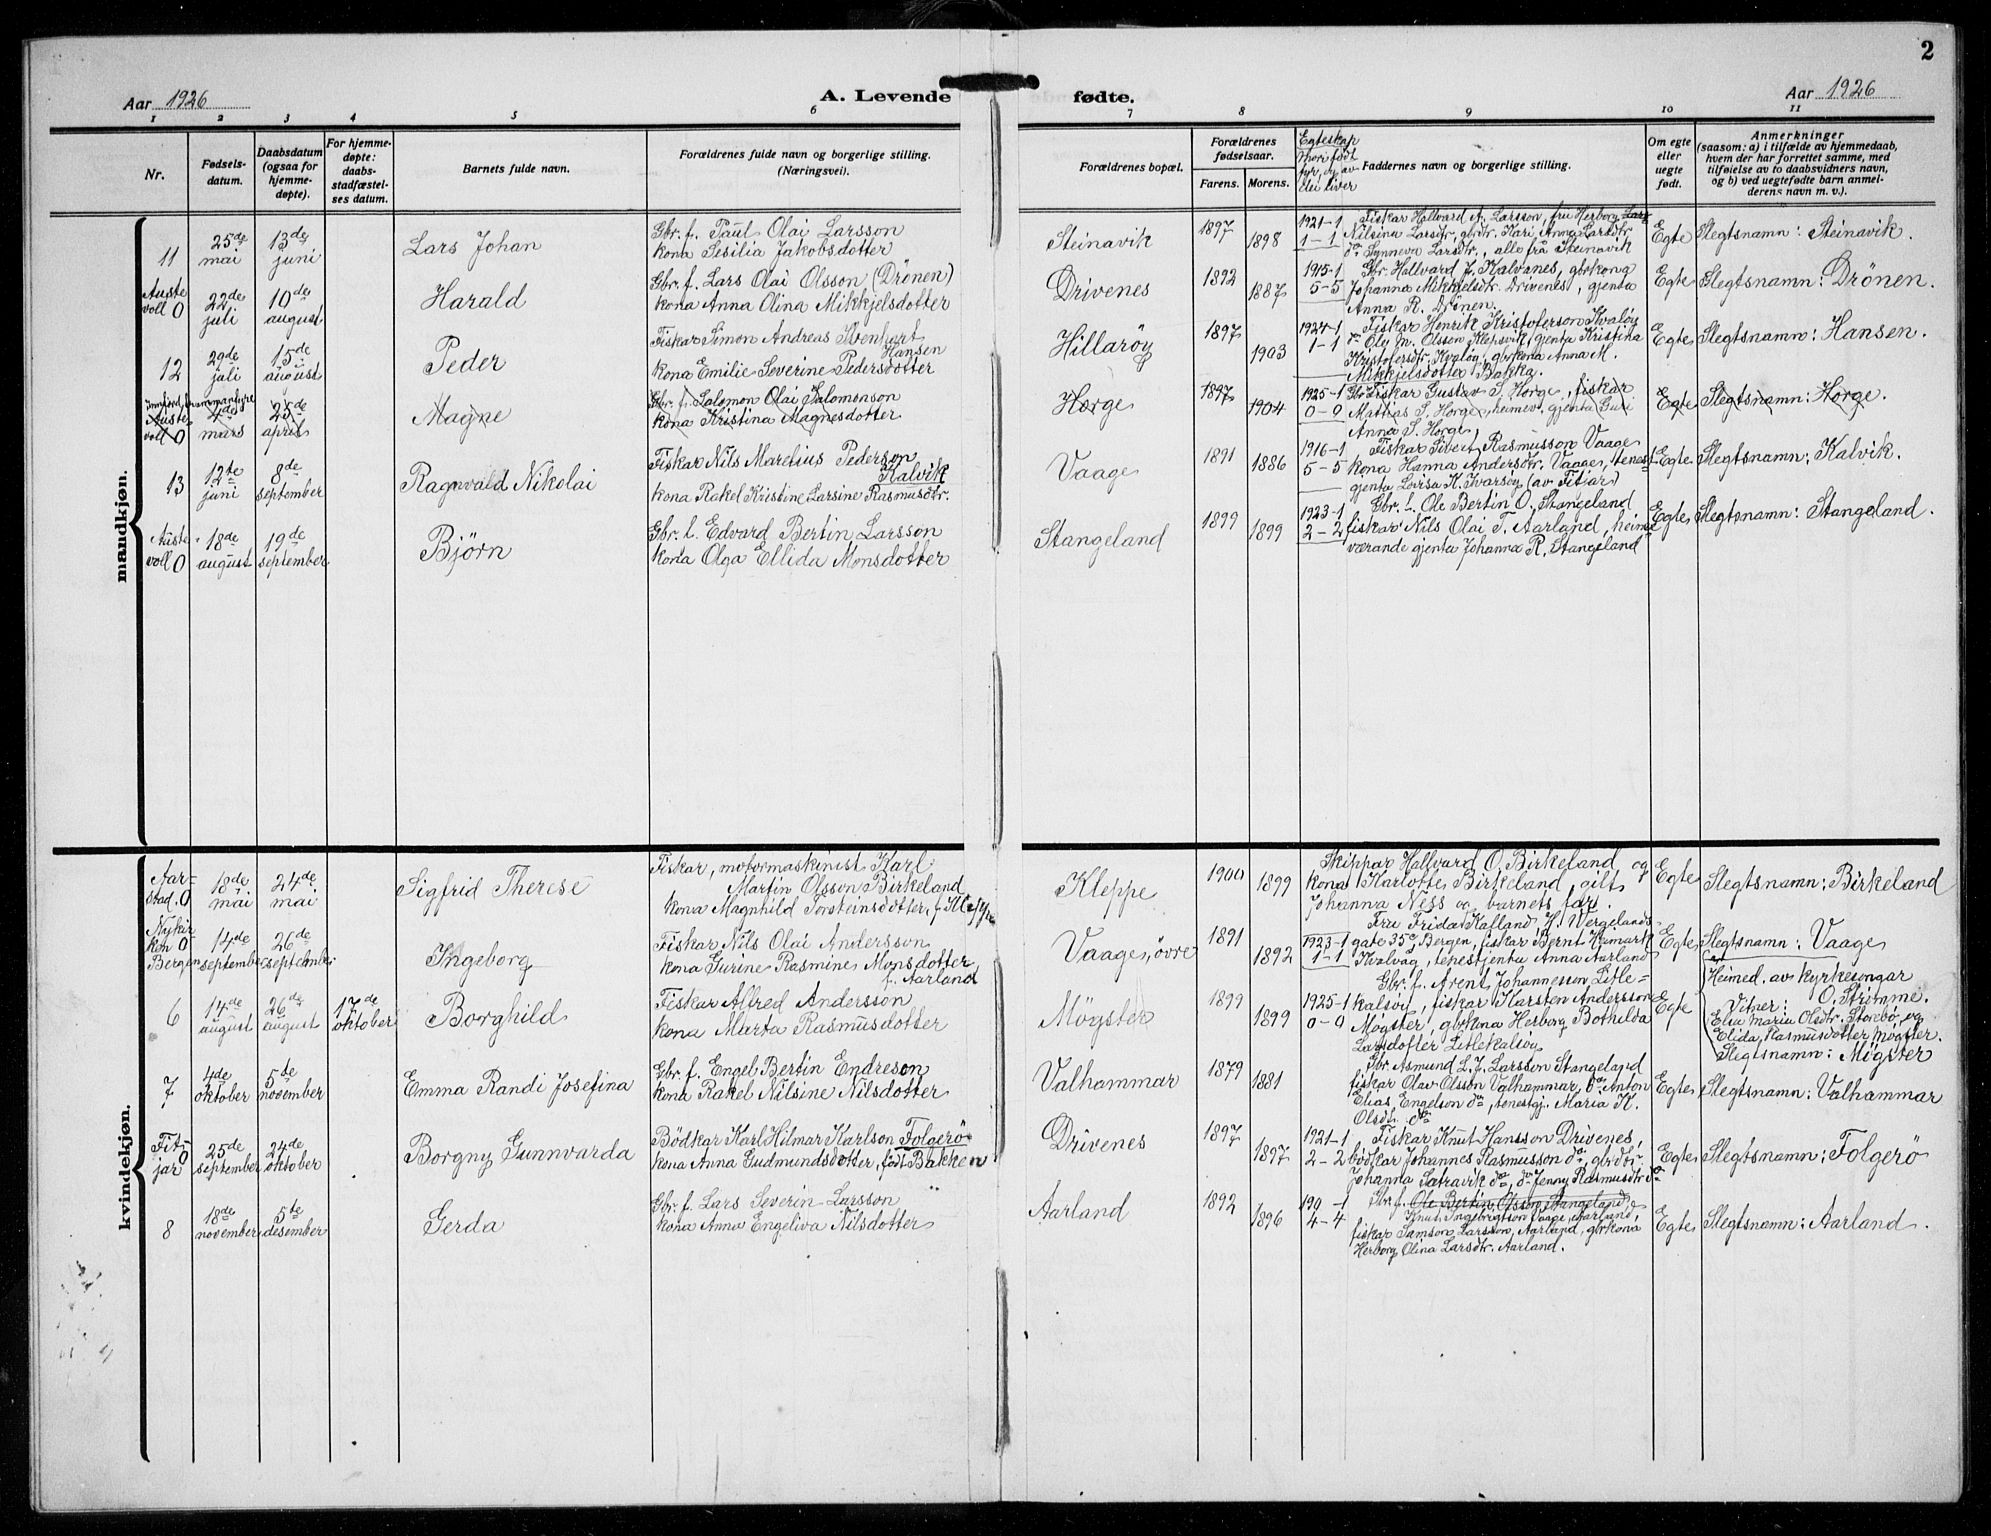 2
Aar 1926
A. Levende
fødte.
Aar 1926
1 2 3 4 5 6 7 8 9 10 11
Nr.
Fødsels-
datum.
Daabsdatum
(ogsaa for
hjemme-
døpte).
For hjemme-
døpte:
daabs-
stadfæstel-
ses datum.
Barnets fulde navn.
Forældrenes fulde navn og borgerlige stilling.
(Næringsvei).
Forældrenes bopæl.
Forældrenes
fødselsaar.
Farens.
Morens.
Egteskap
Fadderne navn og borgerlige stilling.
Om egte
eller
uegte
født.
Anmerkninger
(saasom: a) i tilfælde av hjemmedaab,
hvem der har forrettet samme, med
tilføielse av to daabsvidners navn,
og b) ved uegtefødte barn anmel-
derens navn m. v.).
mandkjøn.
11
25de mai
13de juni
Lars Johan
Gbr. f. Paul Olai Larsson
kona Sesilia Jakobsdotter
Steinavik
1897
1898
1921-1
1-1
Fiskar Hallvard A. Larsson, fru Herborg Lars
Nilsina Larsdtr, gbrdtr. Kari Anna Larsdtr
do Synneva Larsdtr., alle frå Steinavik
Egte
Slegtsnamn: Steinavik.
Auste
voll 0
22de juli
10de august
Harald
Gbr. f. Lars Olai Olsson (Drönen)
kona Anna Olina Mikkjelsdotter
Drivenes
1892
1887
1915-1
5-5
Gbr. Hallvard J. Kalvanes, gbrkona
Johanna Mikkjelsdtr. Drivenes, gjenta
Anna R. Drönen.
Egte
Slegtsnamn: Drönen.
12
29de juli
15de august
Peder
Fiskar Simon Andreas
Hansen
kona Emilie Severine Pedersdotter
Hilleröy
1897
1903
1924-1
1-1
Fiskar Henrik Kristoferson Kvalöy
do Ole M. Olsson Klepsvik, gjenta Kristina
Kristofersdtr. Kvalöy, gbrkona Anna M.
Mikkjelsdotter Bakka.
Egte
Slegtsnamn: Hansen.
Auste
voll 0
4de mars
25de april
Magne
Gbr. f. Salomon Olai Salomonson
kona Kristina Magnesdotter
Horge
1897
1904
1925-1
0-0
Gbr. Fiskar Gustav S. Horge, fiskar
Mathias S. Horge, heimev. gjenta Guri
Anna S. Horge,
Egte
Slegtsnamn: Horge.
13
12te juni
8de september
Ragnvald Nikolai
Fiskar Nils Marelius Pederson
Kalvik
kona Rakel Kristine Larsine Rasmusdtr.
Vaage
1891
1886
1916-1
5-5
Fiskar Sivert Rasmusson Vaage
kona Hanna Andersdtr. Vaage, tenest
gjenta Lovisa K. Ivarsöy (av Fitjar)
Egte
Slegtsnamn: Kalvik.
Auste
voll 0
18de august
19de september
Björn
Gbr. l. Edvard Bertin Larsson
kona Olga Ellida Monsdotter
Stangeland
1899
1899
1923-1
2-2
Gbr. L. Ole Bertin O. Stangeland
fiskar Nils Olai T. Aarland, heime
værande gjenta Johanna R. Stangeland
Egte
Slegtsnamn: Stangeland.
kvindekjøn.
Aar-
stad. 0
18de mai
24de mai
Sigfrid Therese
Fiskar, motormaskinist Karl
Martin Olsson Birkeland
kona Magnhild Torsteinsdotter, f. Kleppe
Kleppe
1900
1899
Skippar Hallvard O. Birkeland og
kona Karlotte Birkeland, gilt
Johanna Ness og barnets far.
Egte
Slegtsnamn: Birkeland
Nykir-
ken 0
Bergen
14de september
26de september
Ingeborg
Fiskar Nils Olai Andersson
kona Gurine Rasmine Monsdotter
f. Aarland
Vaage, övre
1891
1892
1923-1
1-1
Fru Frida Kalland, H. Vergelands
gate 35 Bergen, fiskar Bernt
Kvalvåg, tenestjenta Anna Aarland
Egte
Slegtsnamn: Vaage
6
14de august
26de august
17de oktober
Borghild
Fiskar Alfred Andersson
kona Marta Rasmusdotter
Mögster
1899
1899
1925-1
0-0
Gbr. f. Arent Johannesson Litle-
kalsöy, fiskar Karsten Andersson
Mögster, gbrkona Herborg Bothilda
Larsdotter Litlekalsöy
Egte
Heimed. av kyrkesongar
O. Strömme.
Vitner:
Elen Maria Olsdtr. Storebö, og
Elida Rasmusdotter Mögster.
Slegtsnamn: Mögster
7
4de oktober
5de november
Emma Randi Josefina
Gbr. f. Engel Bertin Endreson
kona Rakel Nilsine Nilsdotter
Valhammar
1879
1881
Gbr. Asmund L. J. Larsson Stangeland
fiskar Olav Olsson Valhammar, do Anton
Elias Engelson do, tenestgj. Maria K.
Olsdtr. do
Egte
Slegtsnamn: Valhammar
Fit-
jar 0
25de september
24de oktober
Borgny Gunnvarda
Bödkar Karl Hilmar Karlson Folgerö
kona Anna Gudmundsdotter, født Bakken
Drivenes
1897
1897
1921-1
2-2
Fiskar Knut Hansson Drivenes,
bödkar Johannes Rasmusson do, gbrdtr.
Johanna Sætravik do, do Jenny Rasmusdtr do
Egte
Slegtsnamn: Folgerö
8
18de november
5te desember
Gerda
Gbr. f. Lars Severin Larsson
kona Anna Engeliva Nilsdotter
Aarland
1892
1896
4-4
Gbr. f. Ole Bertin Olsson Stangeland
Knut Ingebrigtson Vaage, Aarland,
fiskar Samson Larsson, Aarland, gbrkona
Herborg Olina Larsdtr. Aarland.
Egte
Slegtsnamn: Aarland.